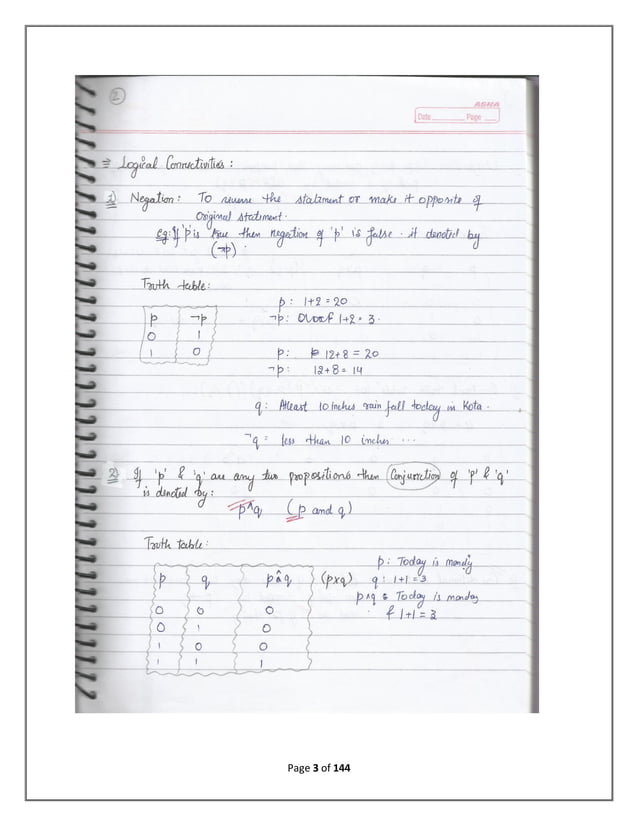 2
ASHA
Date Page
⇒ Logical Connectivities :
1) Negation : To reverse the statement or make it opposite of
Original statement.
Eg: If 'p' is true then negation of 'p' is false . it denoted by
(¬p) .
Truth table:
p ¬p
0 1
1 0
p : 1+2 = 20
¬p : 1+2 = 3 .
p : 12+8 = 20
¬p : 12+8 = 14
q : Atleast 10 Inches rain fall today in Kota .
¬q = less than 10 inches ...
2) If 'p' & 'q' are any two propositions then Conjunction of 'p' & 'q'
is denoted by :
p^q (p and q)
Truth table :
p q p^q (p×q)
0 0 0
0 1 0
1 0 0
1 1 1
p : Today is monday
q : 1+1 = 3
p^q : Today is monday
& 1+1 = 3
Page 3 of 144